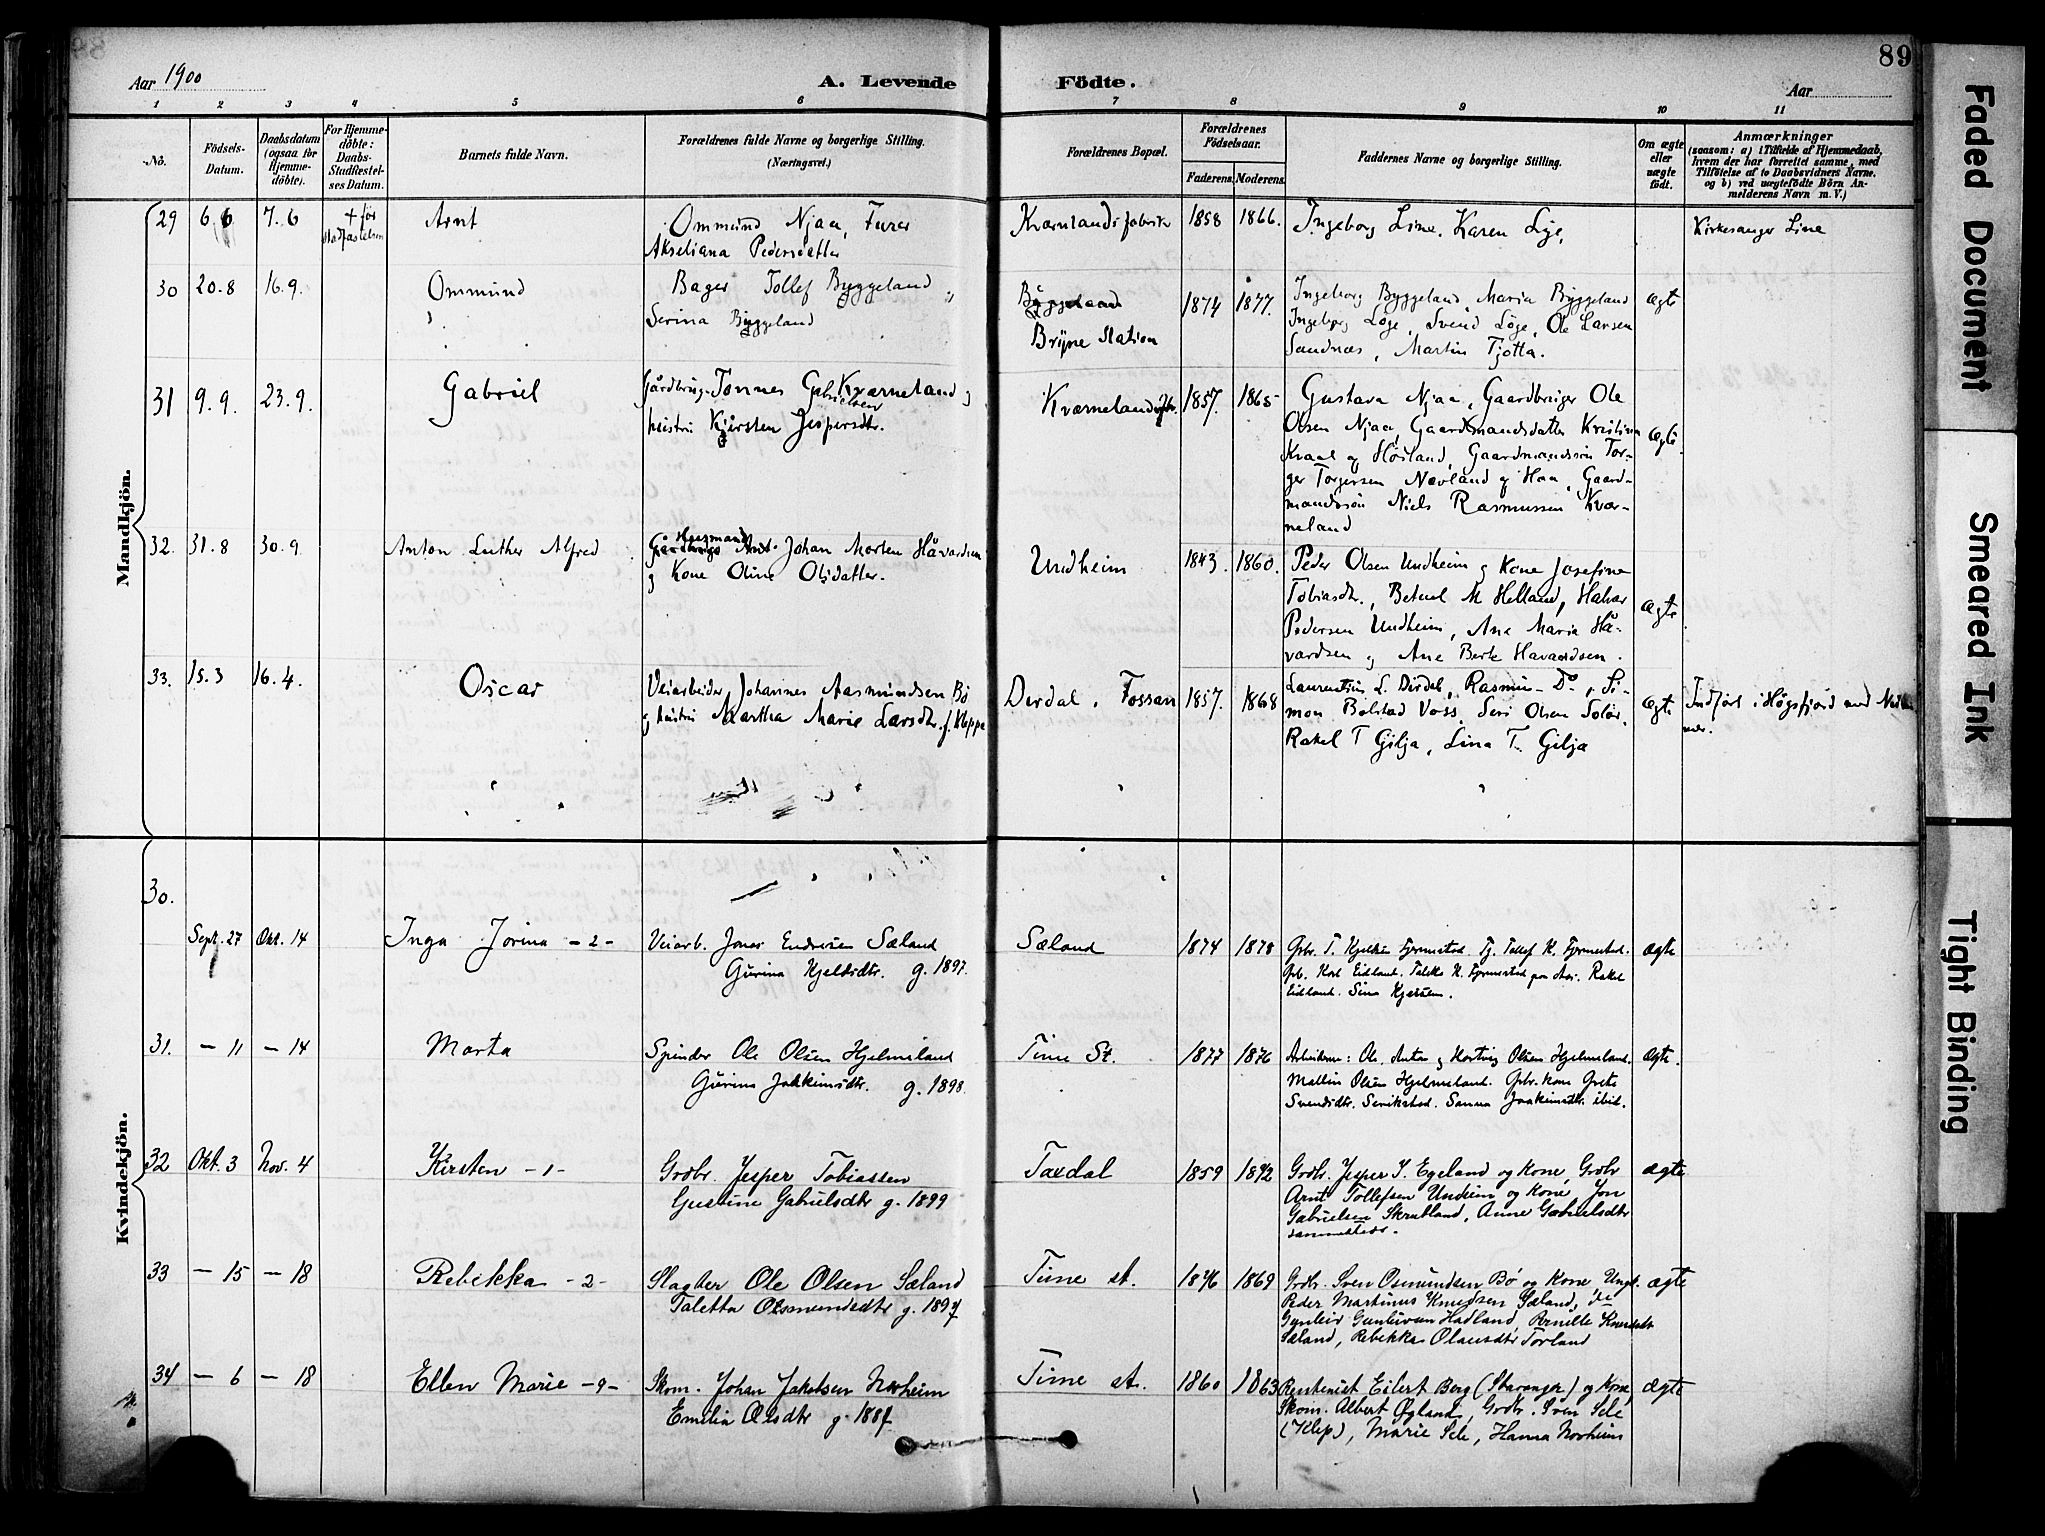 89
Aar 1900
A. Levende Födte.
Aar
1 2 3 4 5 6 7 8 9 10 11
No.
Födsels-
Datum.
Daabsdatum
(ogsaa for
Hjemme-
döbte).
For Hjemme-
döbte:
Daabs-
Stadfæstel-
ses Datum.
Barnets fulde Navn.
Forældrenes fulde Navne og borgerlige Stilling.
(Næringsvei.)
Forældrenes Bopæl.
Forældrenes
Födselsaar.
Faderens. Moderens.
Faddernes Navne og borgerlige Stilling.
Om ægte
eller
uægte
født.
Anmærkninger
(saasom: a) i Tilfælde af Hjemmedaab,
hvem der har forrettet samme, med
Tilföielse af to Daabsvidners Navne.
og b) ved uægtefödte Börn An-
melderens Navn m. V.)
Mandkjön.
29 6.6 7.6 + før
stadfæstelsen
Arnt
Ommund Njaa,
Akseliana Pedersdatter
Kværnlandsfabrik 1858 1866.
Ingeborg Line. Karen Lye,
Kirkesanger Line
30 20.8 16.9.
Ommund
Bager Tollef Byggeland
Serina Byggeland
Byggeland
Bryne Station
1874 1877.
Ingeborg Byggeland Maria Byggeland
Ingeborg Löge, Svend Löge, Ole Larsen
Sandnæs, Martin Tjotta.
ægte
31 9.9. 23.9.
Gabriel
Gårdbrug. Tønnes Gabrielsen Kværneland og
hustru Kjersten Jespersdtr.
Kværnelandsfbr. 1857. 1865
Gustava Njaa, Gaardbruger Ole
Olsen Njaa, Gaardmandsdatter Kristine
Kraal og Høiland, Gaardmandssøn Tor-
ger Torgersen Nævland og Haa, Gaard-
mandssøn Niels Rasmussen Kvær-
neland
ægte.
32. 31.8 30.9.
Anton Luther Alfred
Husmand
Johan Morten Håvardsen
og Kone Oline Olsdatter.
Undheim 1843. 1860.
Peder Olsen Undheim og Kone Josefine
Tobiasdtr., Betuel M Helland, Halvar
Pedersen Undheim, Ane Maria Hå-
vardsen og Ane Berte Havaardsen.
ægte
33. 15.3 16.4.
Oscar
Veiarbeider Johannes Aasmundsen Bø
og hustru Martha Marie Larsdtr. f. Kleppe
Dirdal, Fossan 1857. 1868
Laurentius L. Dirdal, Rasmus Do, Si-
mon Bolstad Voss, Seri Olsen Solør,
Rakel T Gilja, Lina T. Gilja
ægte
Indført i Høgsfjord med
Kvindekjön.
30.
Sept. 27 Okt. 14
Inga Jorina - 2 -
Veiarb. Jonas Endresen Sæland
Gurina Kjeldsdtr. g. 1897.
Sæland 1874 1878
Gbr. T. Kjeldsen Fjermestad. Tj. Tollef K. Fjermestad.
Gb. Karl Eidland. Talette K. Fjermestad paa Aas. Rakel
Eidland. Sina Kjelsen.
ægte
31. - 11 - 14
Marta
Spinder Ole Olsen Hjelmeland
Gurina Joakimsdtr. g. 1898.
Time St. 1877 1876
Arbeiderne: Ole, Anton og Hartvig Olsen Hjelmeland.
Mallin Olsen Hjelmeland. Gbr. kone Grete
Svendsdtr. Serikstad. Sanna Joakimsdtr. ibid.
ægte.
32 Okt. 3 Nov. 4
Kirsten - 1 -
Grdbr. Jesper Tobiassen
Gustine Gabrielsdtr g. 1899
Taxdal 1859 1872
Grdbr. Jesper T. Egeland og Kone, Grdbr
Arnt Tollefsen Undeim og Kone, Jon
Gabrielsen Skrudland, Anne Gabrielsdtr
sammesteds.
ægte
33 - 15 - 18
Rebekka - 2 -
Slagter Ole Olsen Sæland
Taletta Osmundsdtr g. 1897
Time st. 1876 1869
Grdbr. Sven Osmundsen Bø og Kone Ungk.
Peder Martinus Knudsen Sæland, do
Gunleiv Gunleivsen Hadland, Pernille Knudsdtr
Sæland, Rebekka Olausdtr Torland
ægte
34 - 6 - 18
Ellen Marie - 9 -
Skom. Johan Jakobsen Norheim
Emilia Olsdtr g. 1887
Time st. 1860 1863
Rentenist Eilert Berg (Stavanger) og Kone,
Skom. Albert Øgland, Grdbr. Sven Sele
(Klep), Marie Sele, Hanna Norheim
ægte
Faded Document
Smeared Ink
Tight Binding